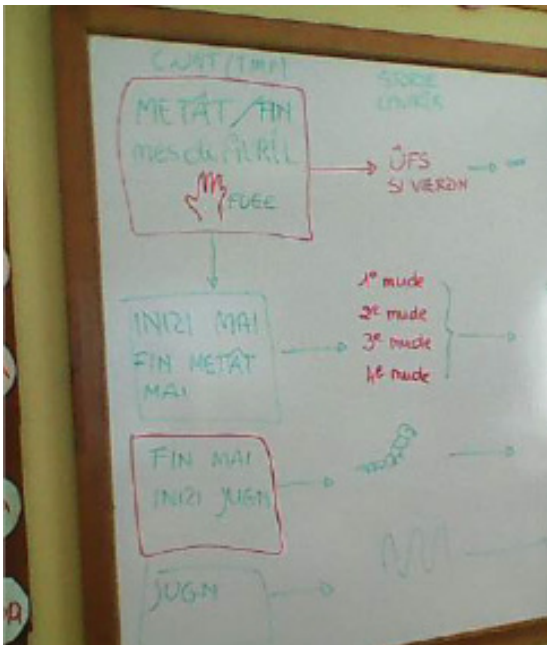 METÂT/FIN
mes di AVRÎL
FUEE
ÛFS
SI VIERZIN
INIZI MAI
FIN METÂT
MAI
1e mude
2e mude
3e mude
4e mude
FIN MAI
INIZI JUGN
JUGN